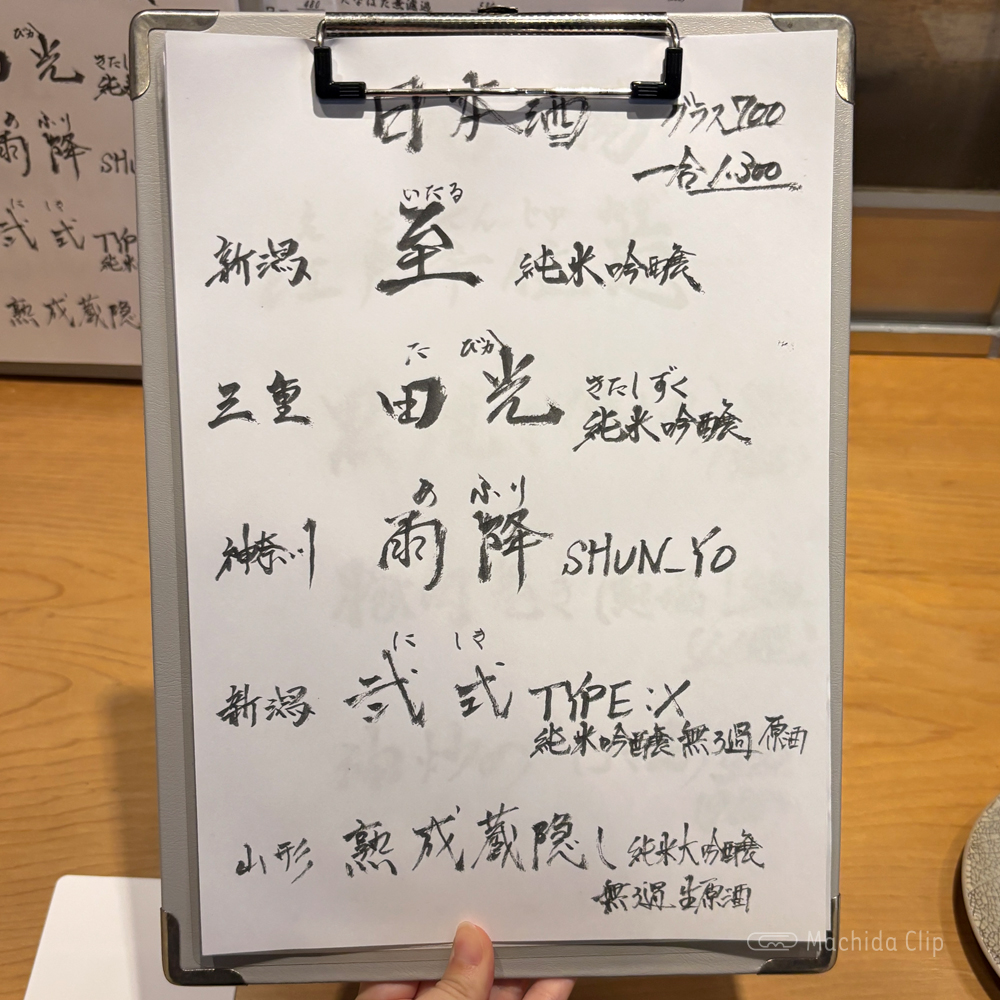 日本酒 グラス700
一合1,300
いたる
新潟 至 純米吟醸
た びか きたしずく
三重 田光 純米吟醸
あ ふり
神奈川 雨降 SHUN_YO
に しき
新潟 弐式 TYPE:X
純米吟醸 無ろ過 原酒
山形 熟成蔵隠し 純米大吟醸
無ろ過 生原酒
びか
光 きたし
純米
あ ふり
雨降 SHU
に しき
弐式 TYP
純米
熟成蔵隠
Machida Clip